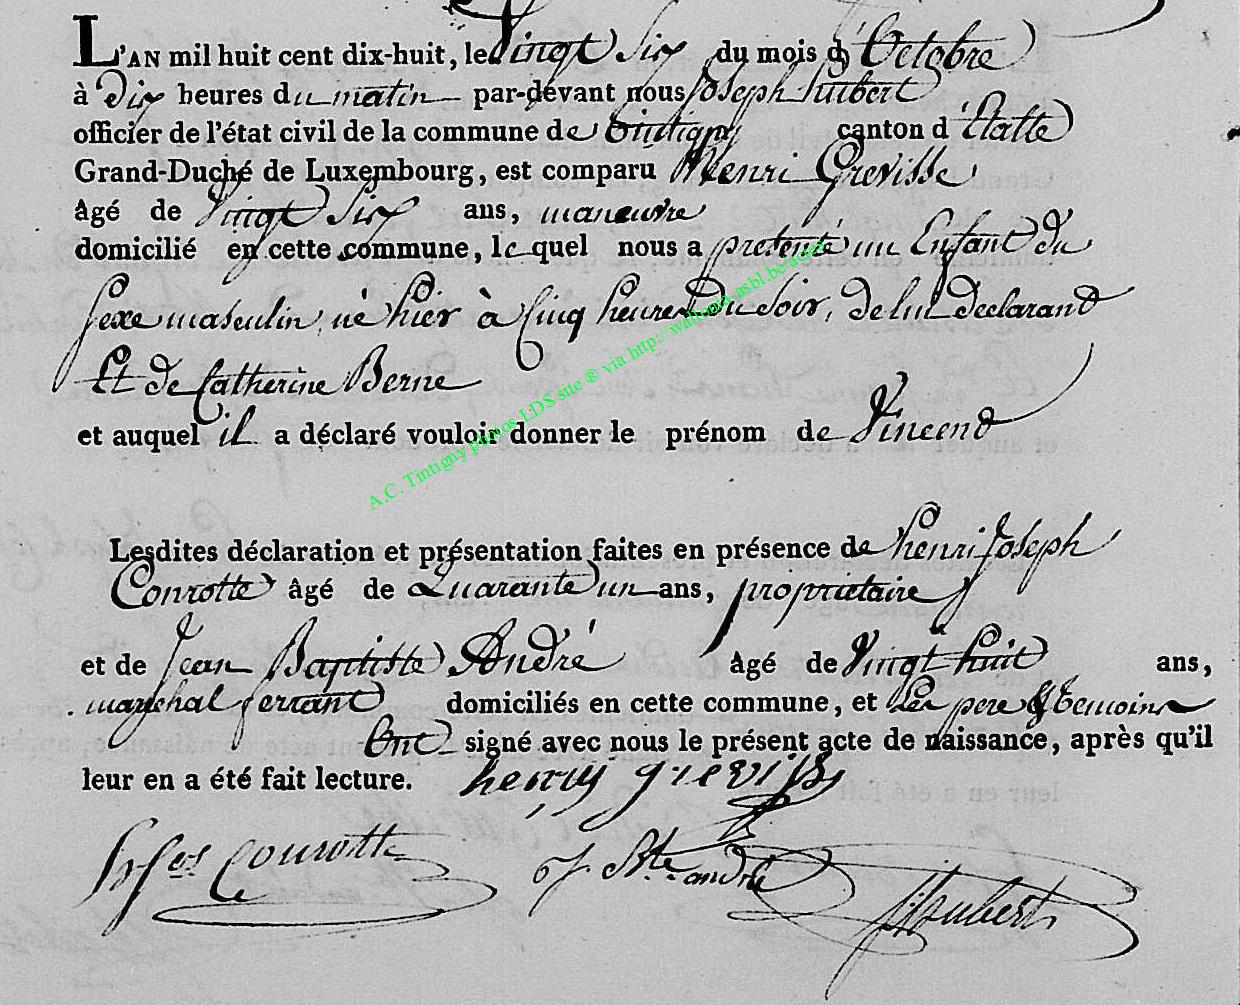 L'AN mil huit cent dix-huit, le Vingt Six du mois d'Octobre
à Dix heures du matin par-devant nous Joseph hubert
officier de l'état civil de la commune de tintigny canton d'Etalle
Grand-Duché de Luxembourg, est comparu Henri Grevisse
âgé de Vingt Six ans, maneuvre
domicilié en cette commune, lequel nous a presenté un Enfant du
Sexe masculin, né hier à Cinq heures Du Soir, de lui declarant
Et de Catherine Berne
et auquel il a déclaré vouloir donner le prénom de Vincent
A.C. Tintigny photos LDS site ® via http://wallonia-asbl.be/actes
Lesdites déclaration et présentation faites en présence de henri Joseph
Conrotte âgé de Quarante un ans, propriétaire
et de Jean Baptiste André âgé de Vingt huit ans,
marechal ferrant domiciliés en cette commune, et Les pere & temoins
Ont signé avec nous le présent acte de naissance, après qu'il
leur en a été fait lecture. henry greviss
Conrotte J. Bte andré JHubert